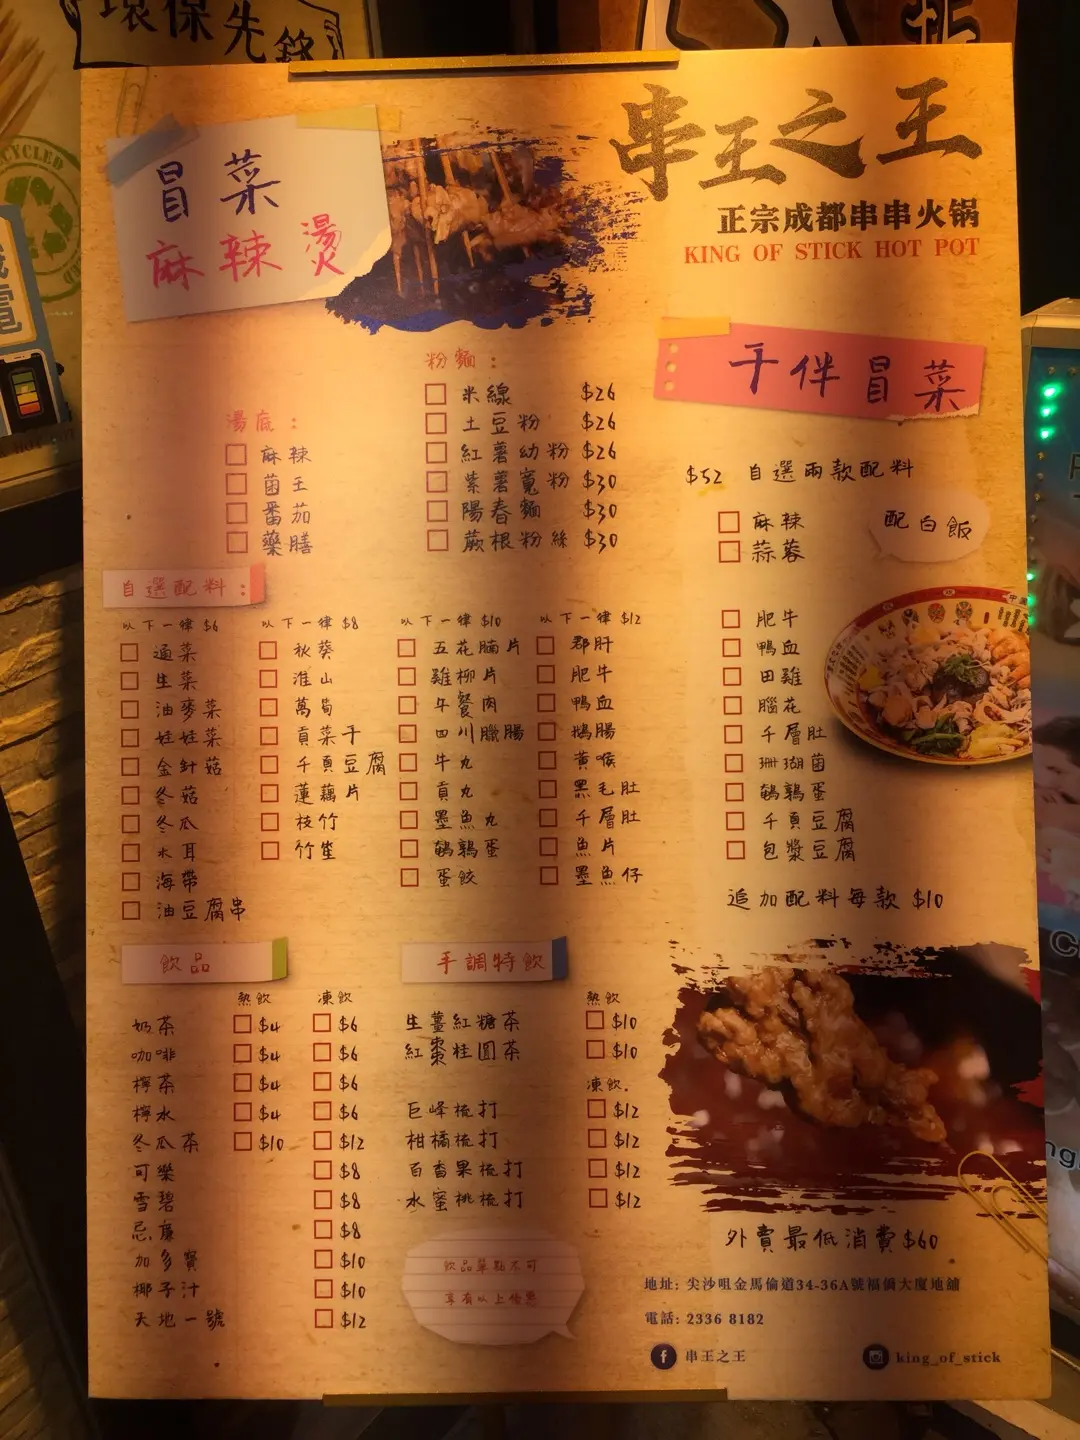 環保先鋒
CYCLED
串王之王
正宗成都串串火锅
KING OF STICK HOT POT
冒菜
麻辣燙
湯底：
麻辣
菌王
番茄
藥膳
粉麵：
米線 $26
土豆粉 $26
紅薯幼粉 $26
紫薯寬粉 $30
陽春麵 $30
蕨根粉絲 $30
干伴冒菜
$52 自選兩款配料
麻辣
蒜蓉
配白飯
肥牛
鴨血
田雞
腦花
千層肚
珊瑚菌
鵪鶉蛋
千頁豆腐
包漿豆腐
追加配料每款 $10
自選配料：
以下一律 $6
通菜
生菜
油麥菜
娃娃菜
金針菇
冬菇
冬瓜
木耳
海帶
油豆腐串
以下一律 $8
秋葵
淮山
萵筍
貢菜干
千頁豆腐
蓮藕片
枝竹
竹笙
以下一律 $10
五花腩片
雞柳片
午餐肉
四川臘腸
牛丸
貢丸
墨魚丸
鵪鶉蛋
蛋餃
以下一律 $12
郡肝
肥牛
鴨血
鵝腸
黃喉
黑毛肚
千層肚
魚片
墨魚仔
飲品
熱飲 凍飲
奶茶 $4 $6
咖啡 $4 $6
檸茶 $4 $6
檸水 $4 $6
冬瓜茶 $10 $12
可樂 $8
雪碧 $8
忌廉 $8
加多寶 $10
椰子汁 $10
天地一號 $12
手調特飲
熱飲
生薑紅糖茶 $10
紅棗桂圓茶 $10
凍飲.
巨峰梳打 $12
柑橘梳打 $12
百香果梳打 $12
水蜜桃梳打 $12
飲品單點不可
享有以上優惠
外賣最低消費$60
地址: 尖沙咀金馬倫道34-36A號福僑大廈地舖
電話: 2336 8182
串王之王
king_of_stick